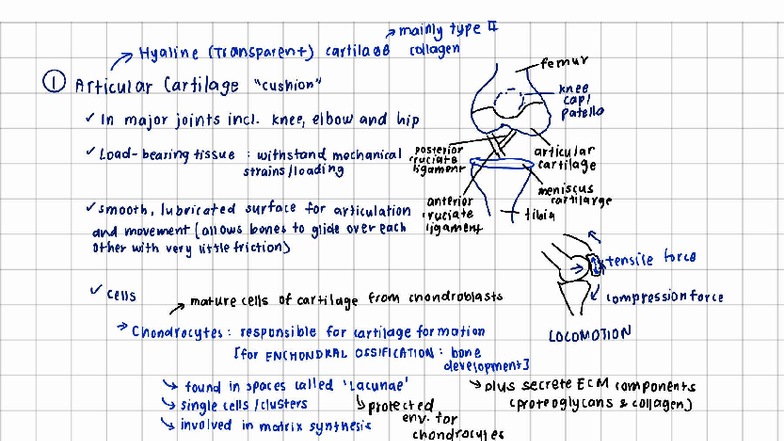 mainly type II
Hyaline (Transparent) cartilage collagen
① Articular Cartilage "cushion"
In major joints incl. knee, elbow and hip
Load-bearing tissue : withstand mechanical
strains/loading
smooth, lubricated surface for articulation
and movement (allows bones to glide over each
other with very little friction)
femur
knee
cap/
patella
posterior
cruciate
ligament
articular
cartilage
meniscus
cartilarge
anterior
cruciate
ligament
tibia
tensile force
compression force
LOCOMOTION
cells
mature cells of cartilage from chondroblasts
Chondrocytes : responsible for cartilage formation
[for ENCHONDRAL OSSIFICATION : bone
development]
found in spaces called 'lacunae'
single cells/clusters
involved in matrix synthesis
protected
env. for
chondrocytes
plus secrete ECM components
(proteoglycans & collagen)